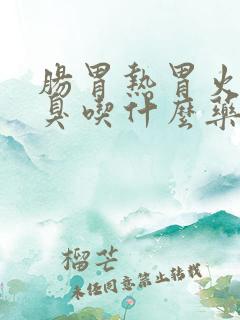 腸胃熱胃火
臭喫什麽藥
榴芒
未经同意禁止转载